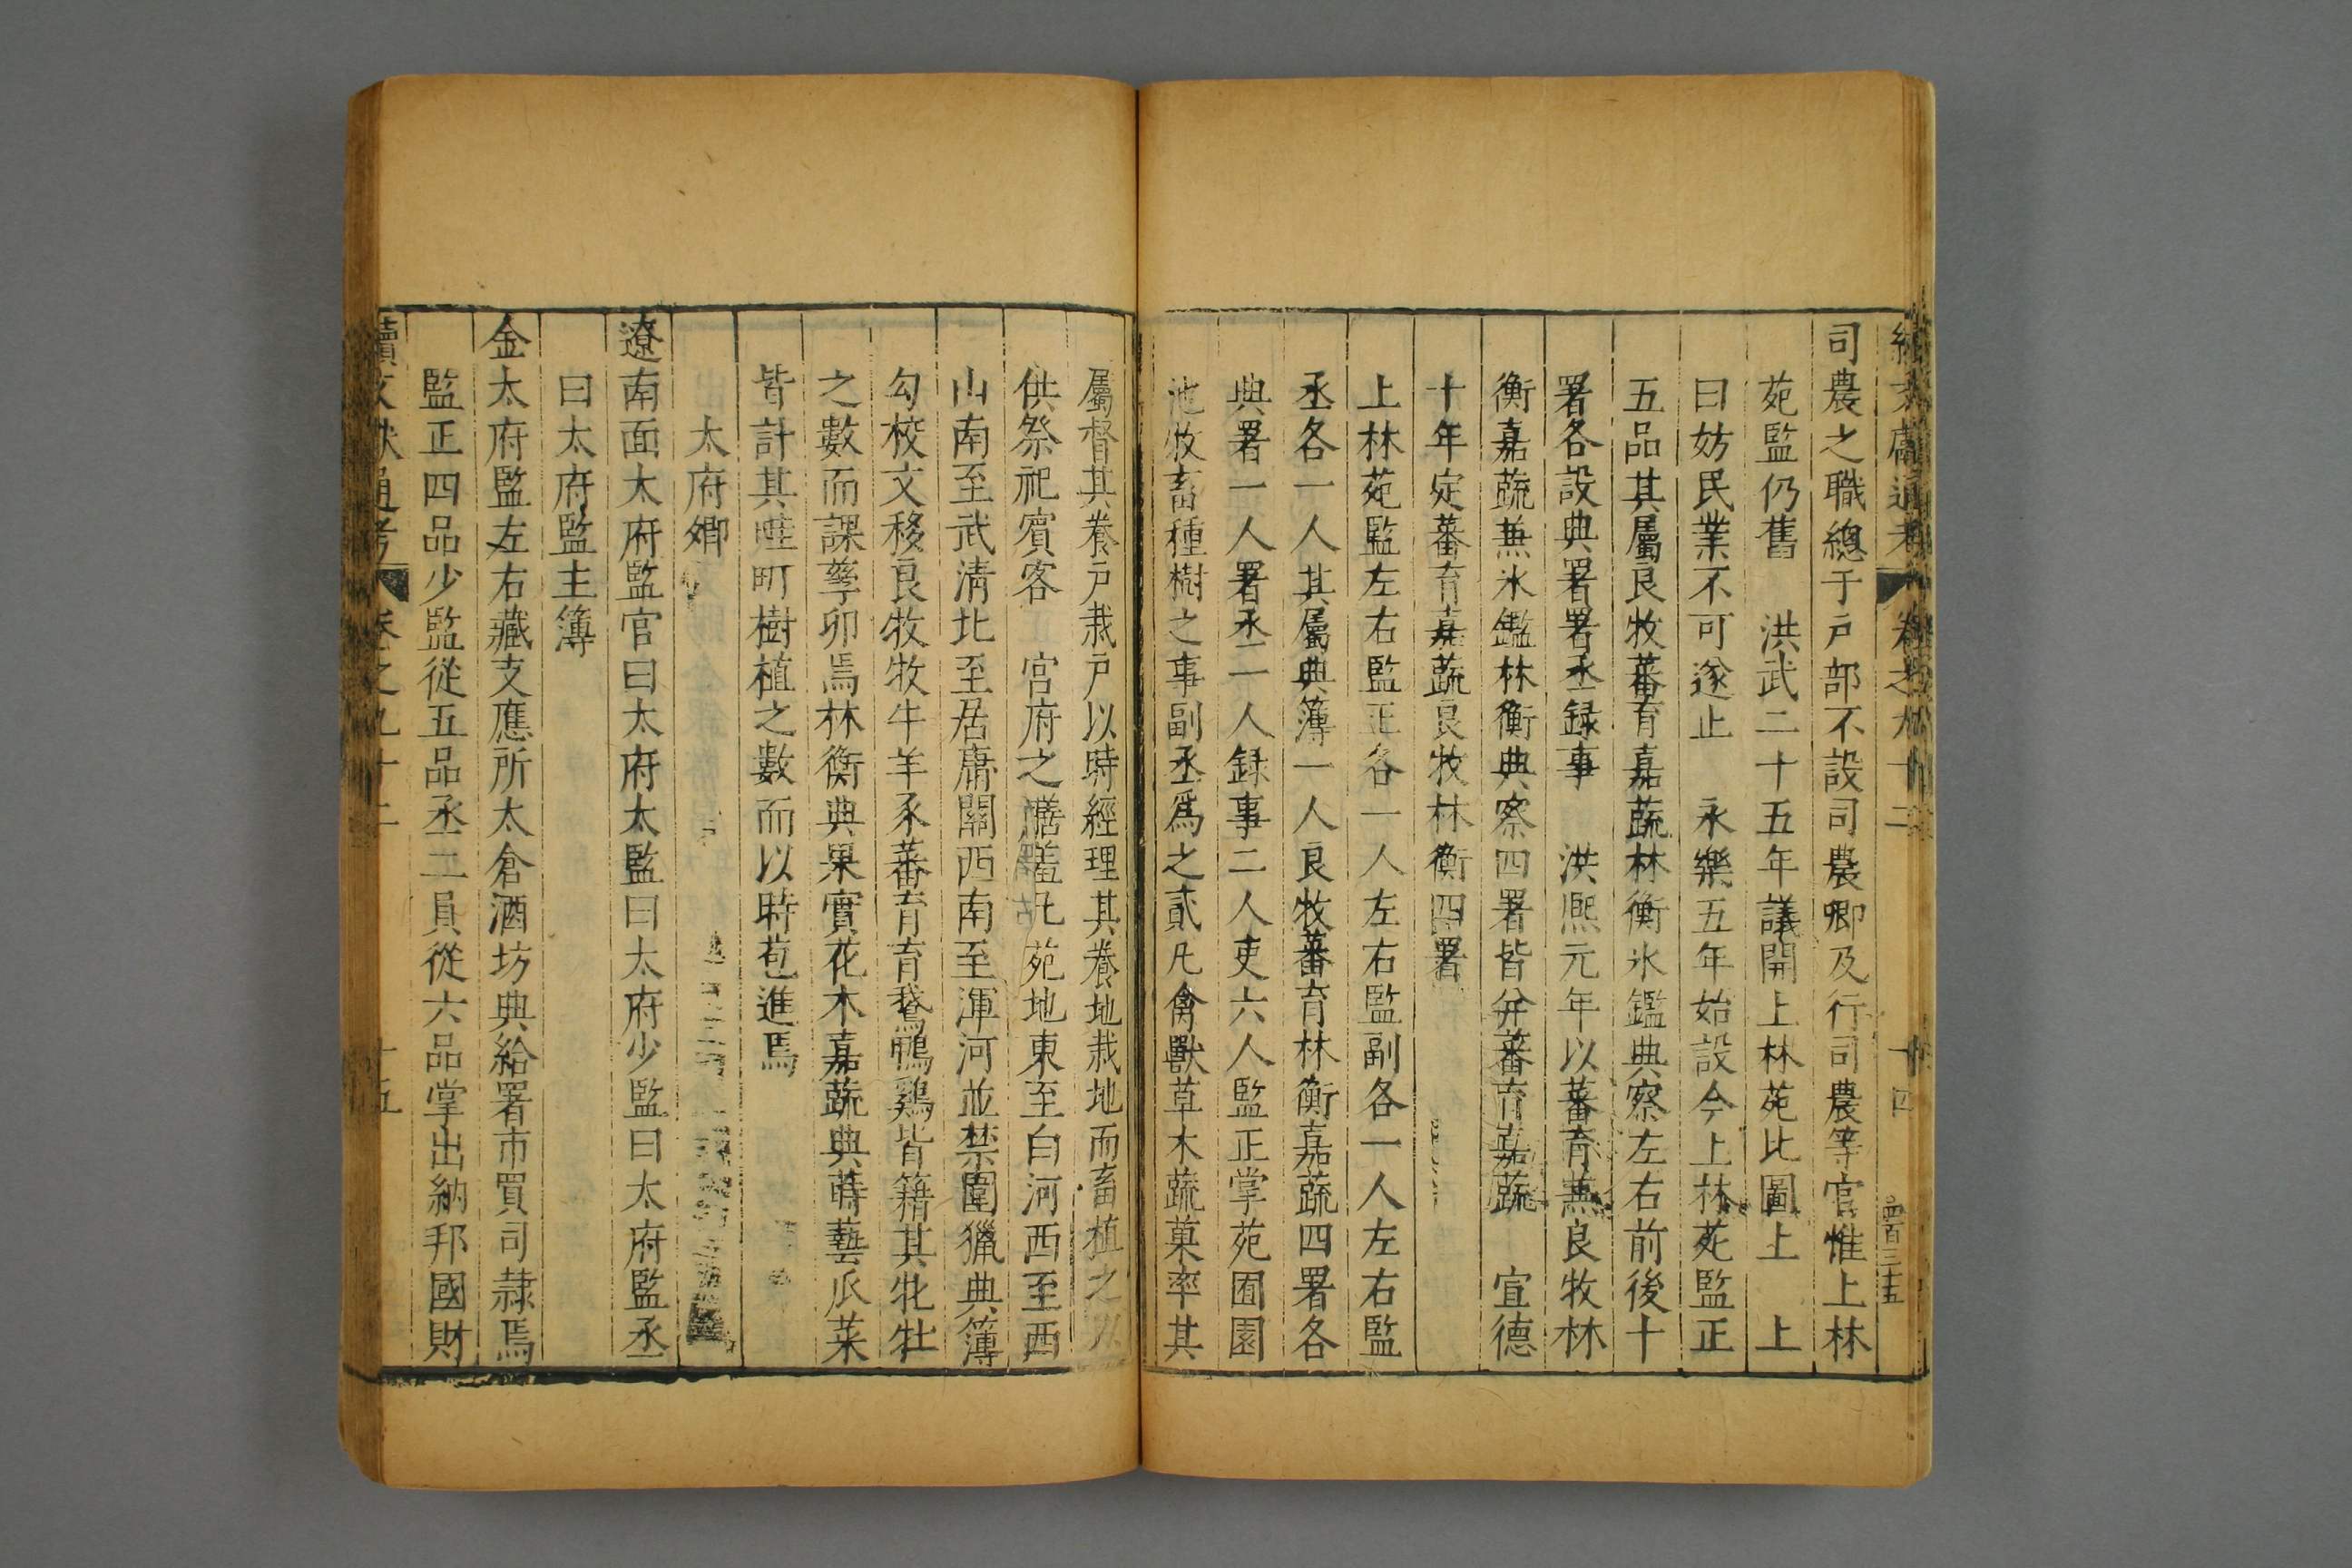 續文獻通考 卷之九十二 十四
司農之職總于戶部不設司農卿及行司農等官惟上林
苑監仍舊 洪武二十五年議開上林苑比圖上 上
曰妨民業不可遂止 永樂五年始設今上林苑監正
五品其屬良牧蕃育嘉蔬林衡氷鑑典察左右前後十
署各設典署署丞録事 洪熈元年以蕃育兼良牧林
衡嘉蔬兼氷鑑林衡典察四署皆并蕃育嘉蔬 宣德
十年定蕃育嘉蔬良牧林衡四署
上林苑監左右監正各一人左右監副各一人左右監
丞各一人其屬典簿一人良牧蕃育林衡嘉蔬四署各
典署一人署丞二人録事二人吏六人監正掌苑囿園
池牧畜種樹之事副丞爲之貳凡禽獸草木蔬菓率其
屬督其養戶栽戶以時經理其養地栽地而畜植之以
供祭祀賓客 宮府之膳羞凡苑地東至白河西至西
山南至武清北至居庸關西南至渾河並禁圍獵典簿
勾校文移良牧牧牛羊豕蕃育育鵞鴨鷄皆籍其牝牡
之數而課孳卵焉林衡典果實花木嘉蔬典蒔藝瓜菜
皆計其畦町樹植之數而以時苞進焉
太府卿
遼南面太府監官曰太府太監曰太府少監曰太府監丞
曰太府監主簿
金太府監左右藏支應所太倉酒坊典給署市買司隷焉
監正四品少監從五品丞二員從六品掌出納邦國財
續文獻通考 卷之九十二 十五